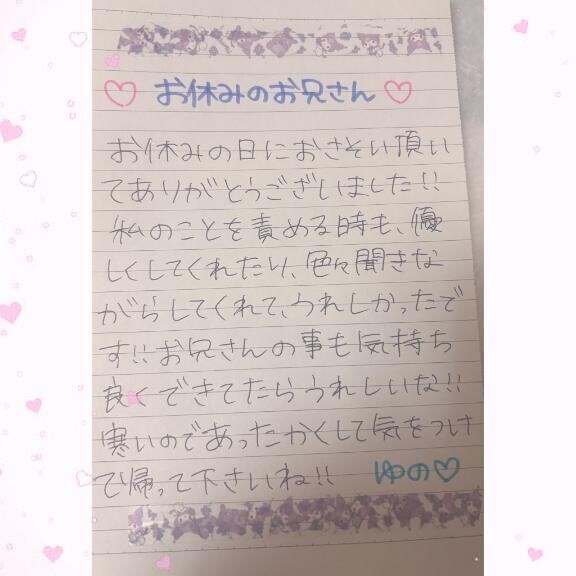 ♡ お休みのお兄さん ♡
お休みの日におさそい頂い
てありがとうございました!!
私のことを責める時も、優
しくしてくれたり、色々聞きな
がらしてくれて、うれしかったで
す!!お兄さんの事も気持ち
良くできてたらうれしいな!!
寒いのであったかくして気をつけ
て帰って下さいね!! ゆの♡